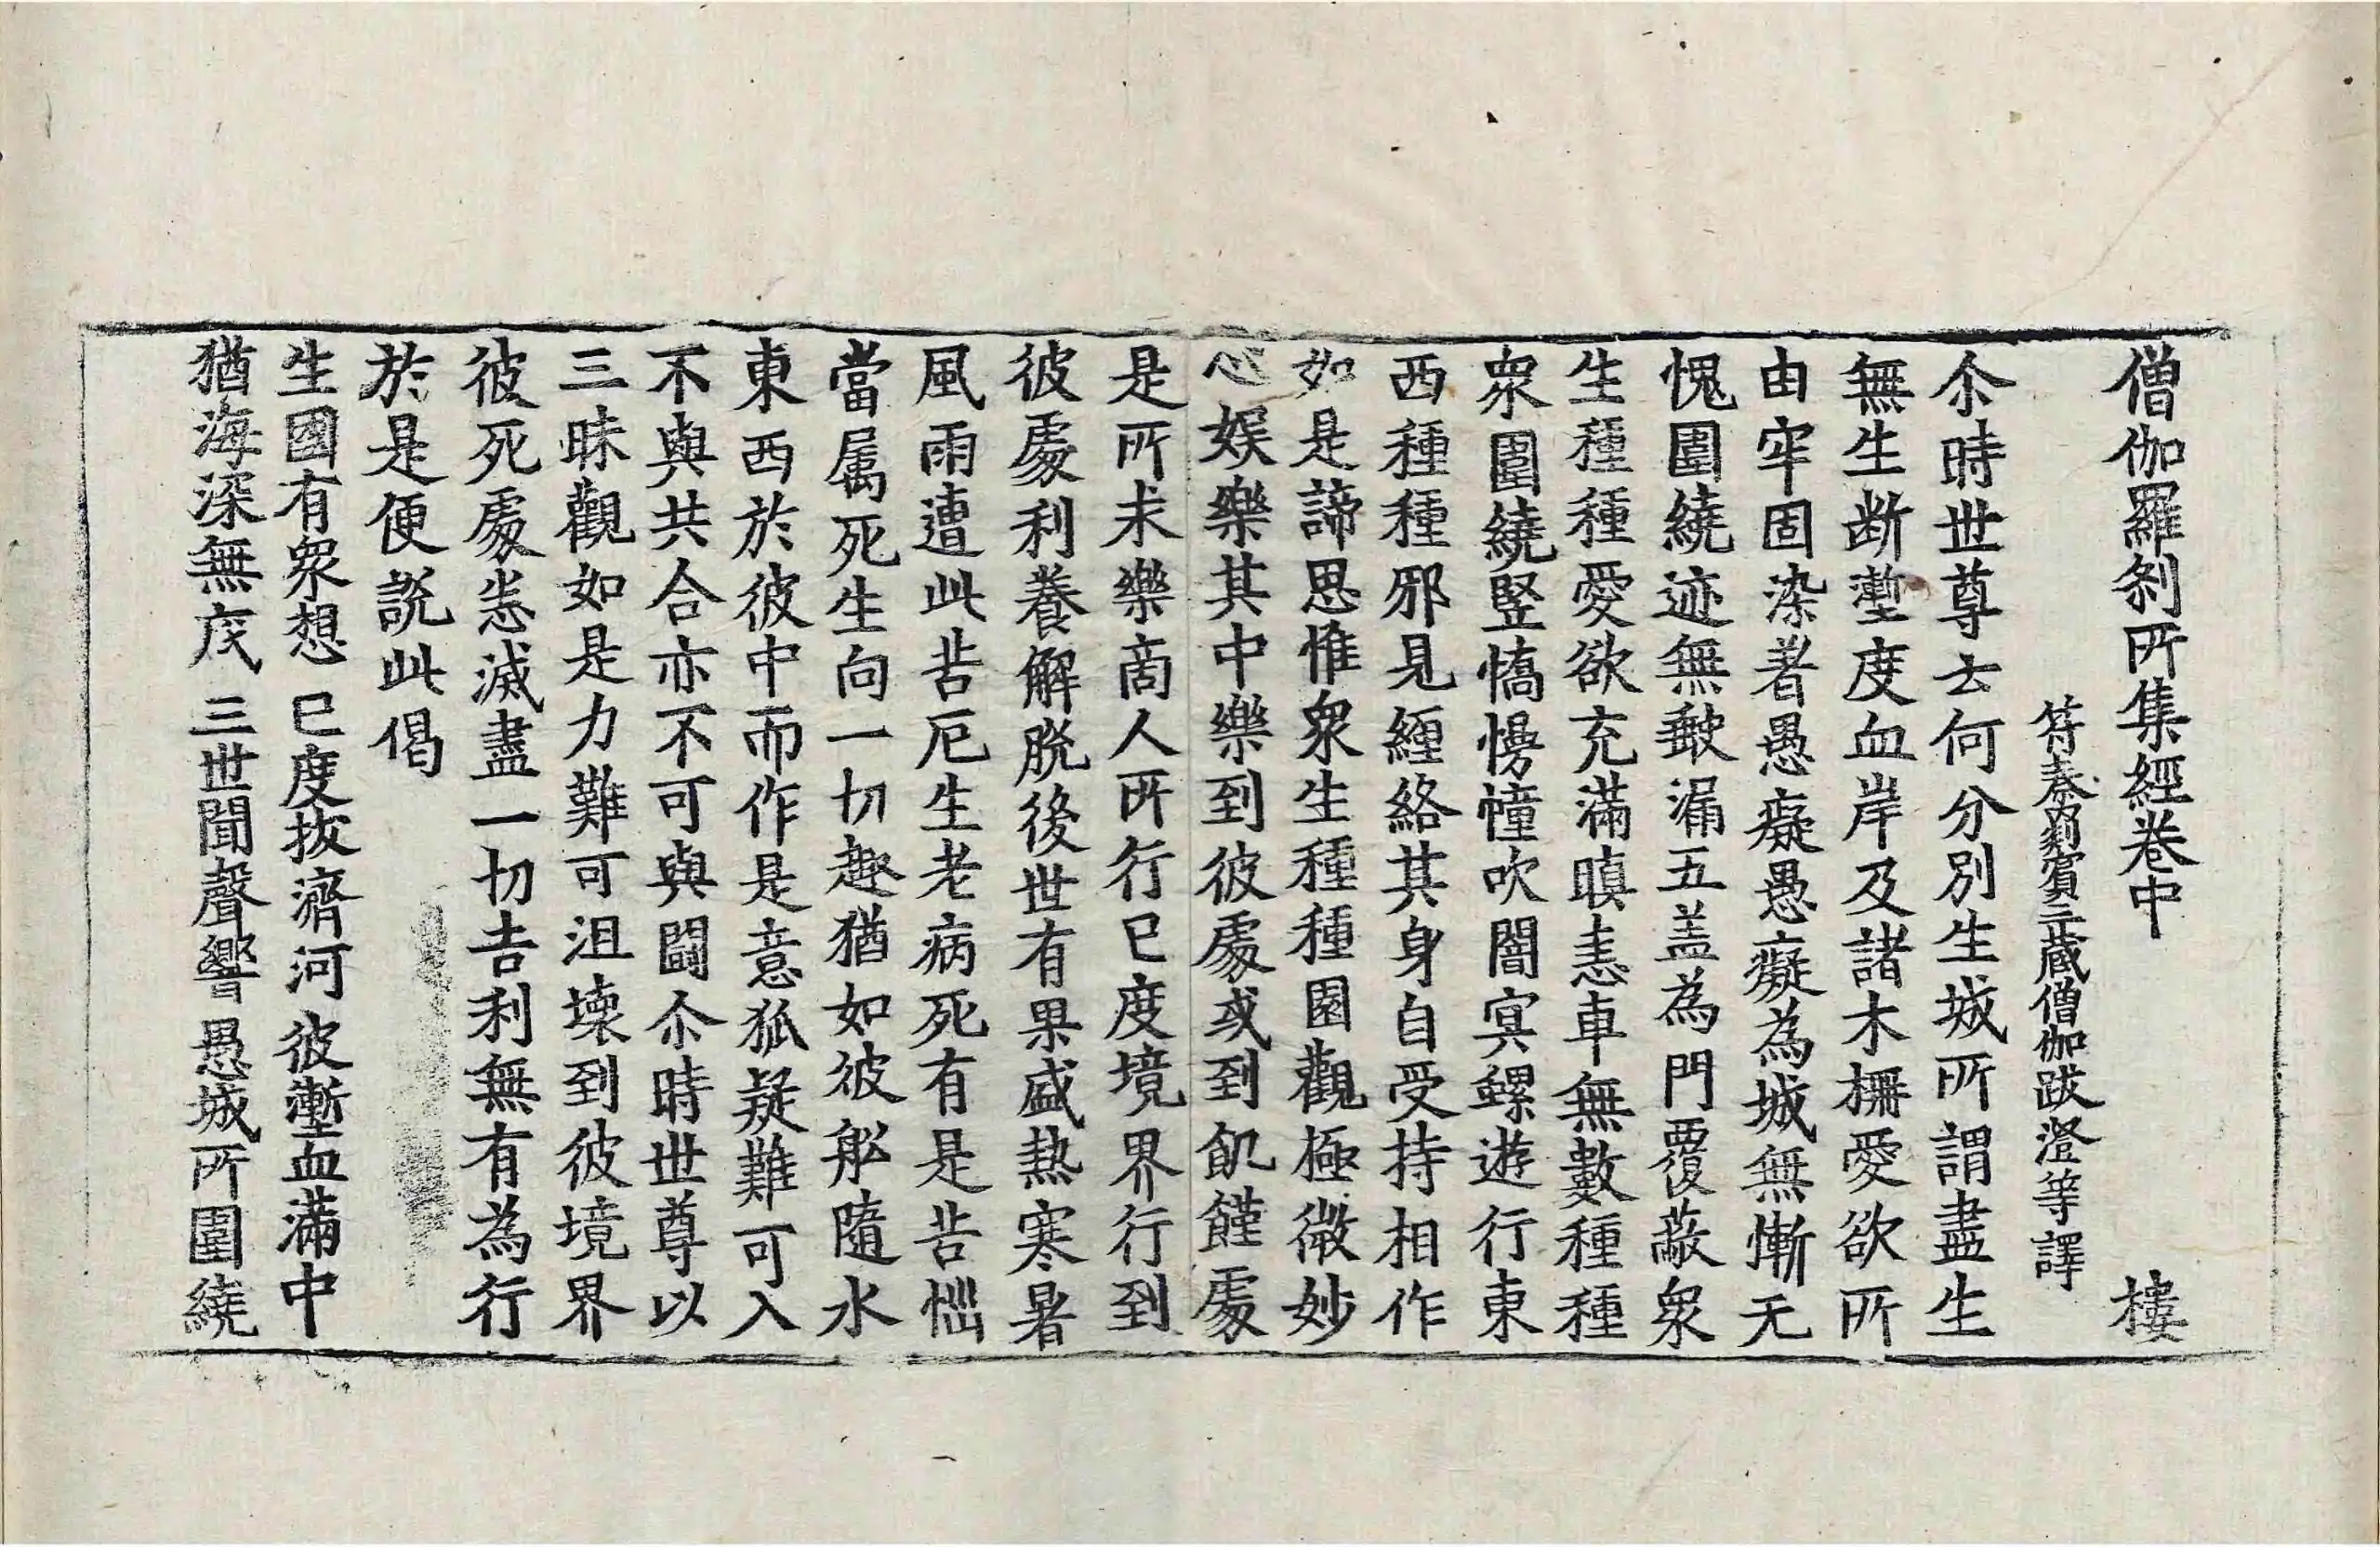 僧伽羅刹所集經卷中 樓
符秦罽賓三藏僧伽跋澄等譯
尒時世尊云何分別生城所謂盡生
無生断壍度血岸及諸木栅愛欲所
由牢固染著愚癡愚癡為城無慚无
愧圍繞迹無𣣋漏五盖為門覆蔽衆
生種種愛欲充滿瞋恚車無數種種
衆圍繞竪憍慢幢吹闇㝠螺遊行東
西種種邪見纏絡其身自受持相作
如是諦思惟衆生種種園觀極微妙
心娱樂其中樂到彼處或到飢饉處
是所求樂商人所行已度境界行到
彼處利養解脱後世有果盛熱寒暑
風雨遭此苦厄生老病死有是苦惱
當属死生向一切趣猶如彼船隨水
東西於彼中而作是意狐疑難可入
不與共合亦不可與闘尒時世尊以
三昧觀如是力難可沮壞到彼境界
彼死處恙滅盡一切吉利無有為行
於是便説此偈
生國有衆想 已度拔濟河 彼壍血滿中
猶海深無底 三世聞聲響 愚城所圍繞